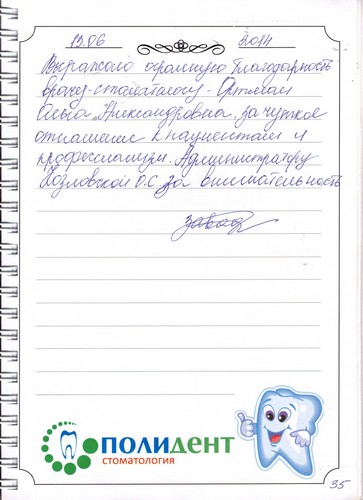 19.06 2014
Выражаю огромную благодарность
врачу-стоматологу - Ортман
Ольга Александровна, за чуткое
отношение к пациентам и
професианизм. Администратору
Козловской О.С за внимательность
ПОЛИДЕНТ
СТОМАТОЛОГИЯ
35